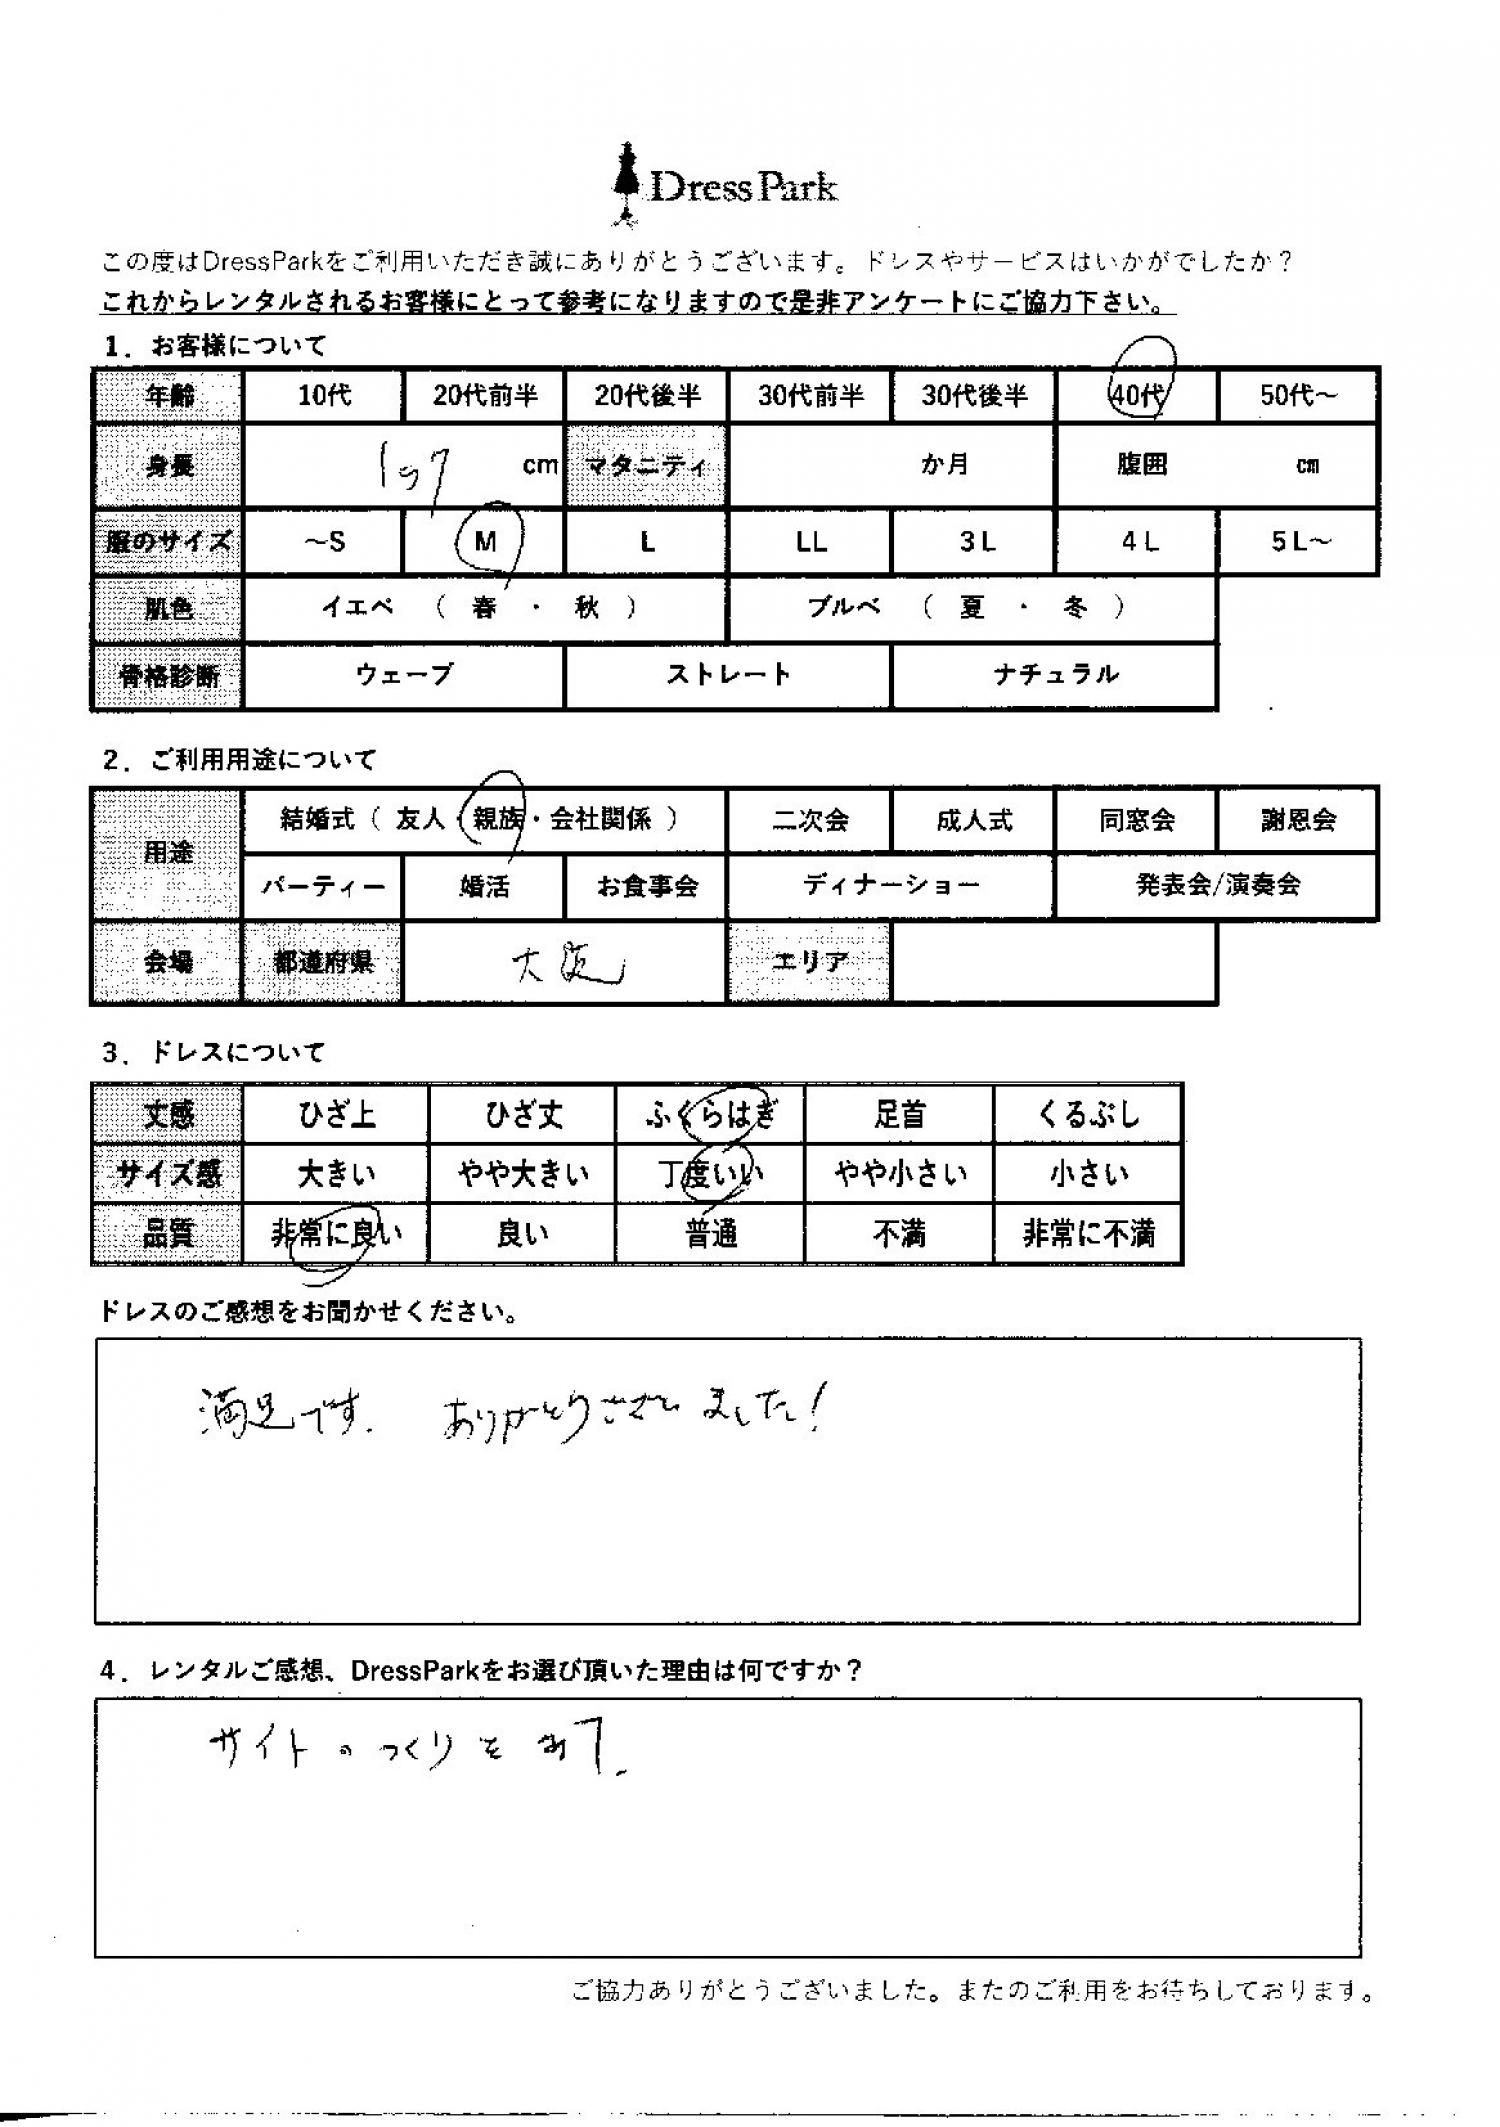 DressPark
この度はDressParkをご利用いただき誠にありがとうございます。ドレスやサービスはいかがでしたか？
これからレンタルされるお客様にとって参考になりますので是非アンケートにご協力下さい。
1．お客様について
年齢 10代 20代前半 20代後半 30代前半 30代後半 40代 50代～
身長 157 cm マタニティ か月 腹囲 cm
服のサイズ ～S M L LL 3L 4L 5L～
肌色 イエベ （ 春 ・ 秋 ） ブルベ （ 夏 ・ 冬 ）
骨格診断 ウェーブ ストレート ナチュラル
2．ご利用用途について
用途 結婚式（ 友人・親族・会社関係 ） 二次会 成人式 同窓会 謝恩会
パーティー 婚活 お食事会 ディナーショー 発表会/演奏会
会場 都道府県 大阪 エリア
3．ドレスについて
丈感 ひざ上 ひざ丈 ふくらはぎ 足首 くるぶし
サイズ感 大きい やや大きい 丁度いい やや小さい 小さい
品質 非常に良い 良い 普通 不満 非常に不満
ドレスのご感想をお聞かせください。
満足です. ありがとうございました!
4．レンタルご感想、DressParkをお選び頂いた理由は何ですか？
サイトのつくりを
ご協力ありがとうございました。またのご利用をお待ちしております。